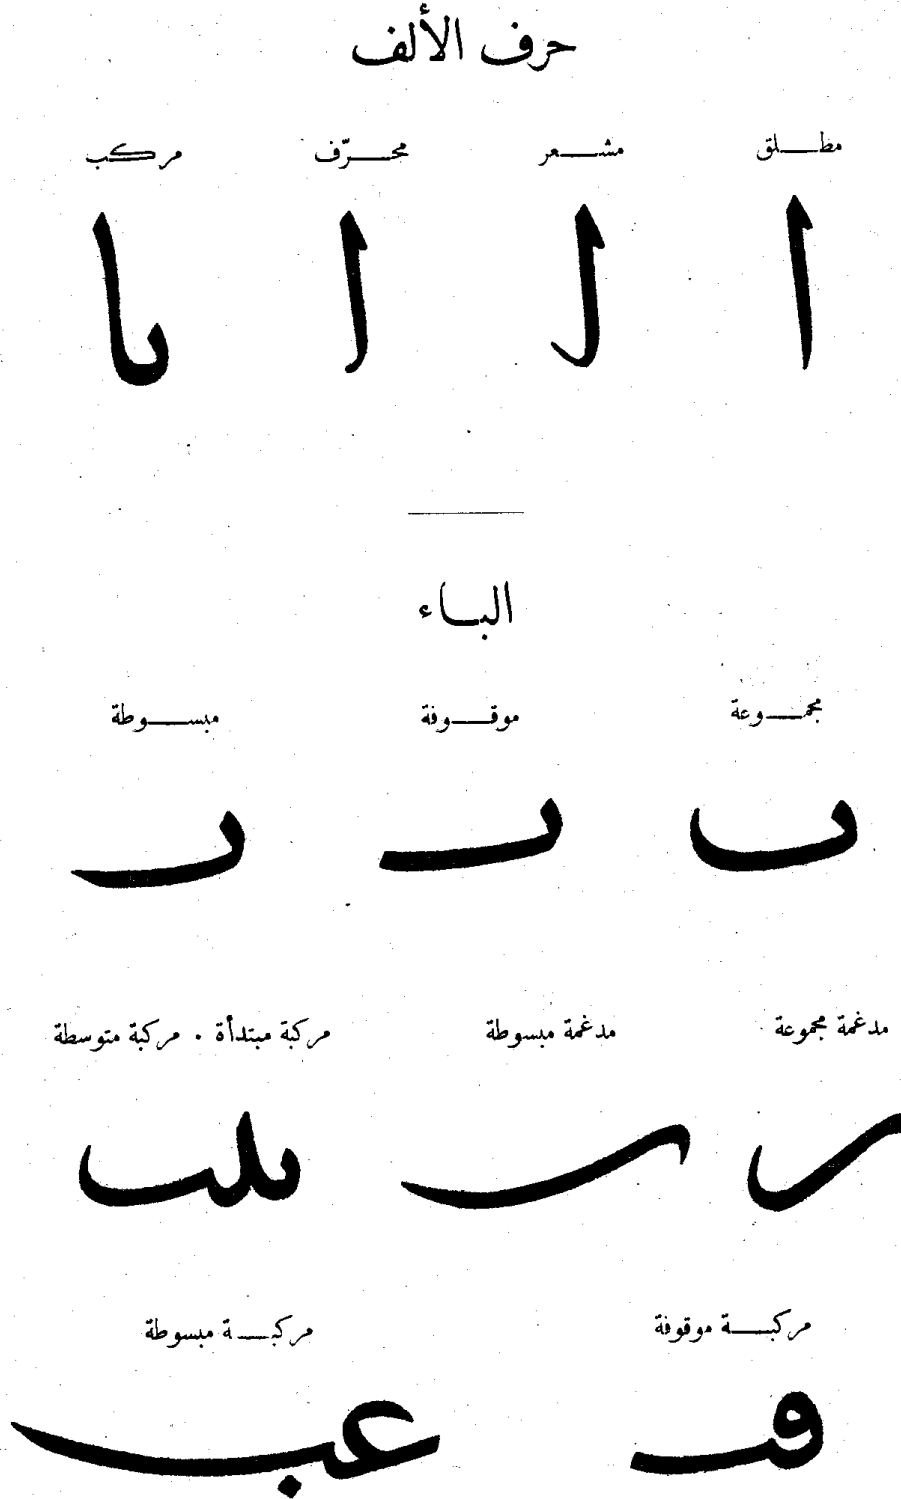 حرف الألف
مطلق مشعر محرّف مركب
ا ل ا ىا
الباء
مجموعة موقوفة مبسوطة
مدغمة مجموعة مدغمة مبسوطة مركبة مبتدأة . مركبة متوسطة
مركبة موقوفة مركبة مبسوطة
عب